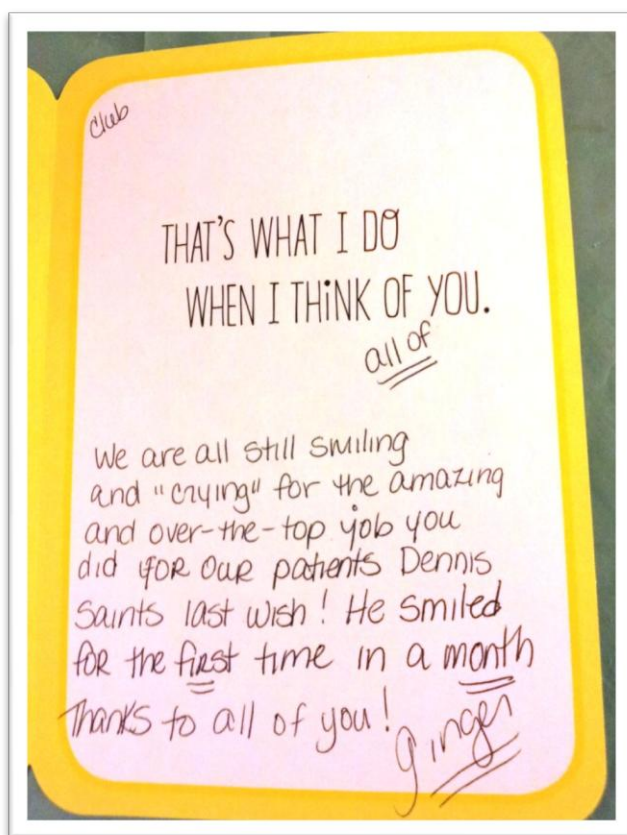 Club
THAT'S WHAT I DO
WHEN I THINK OF YOU.
all of
We are all still smiling
and "crying" for the amazing
and over-the-top job you
did for our patients Dennis
Saints last wish! He smiled
for the first time in a month
Thanks to all of you!
Ginger